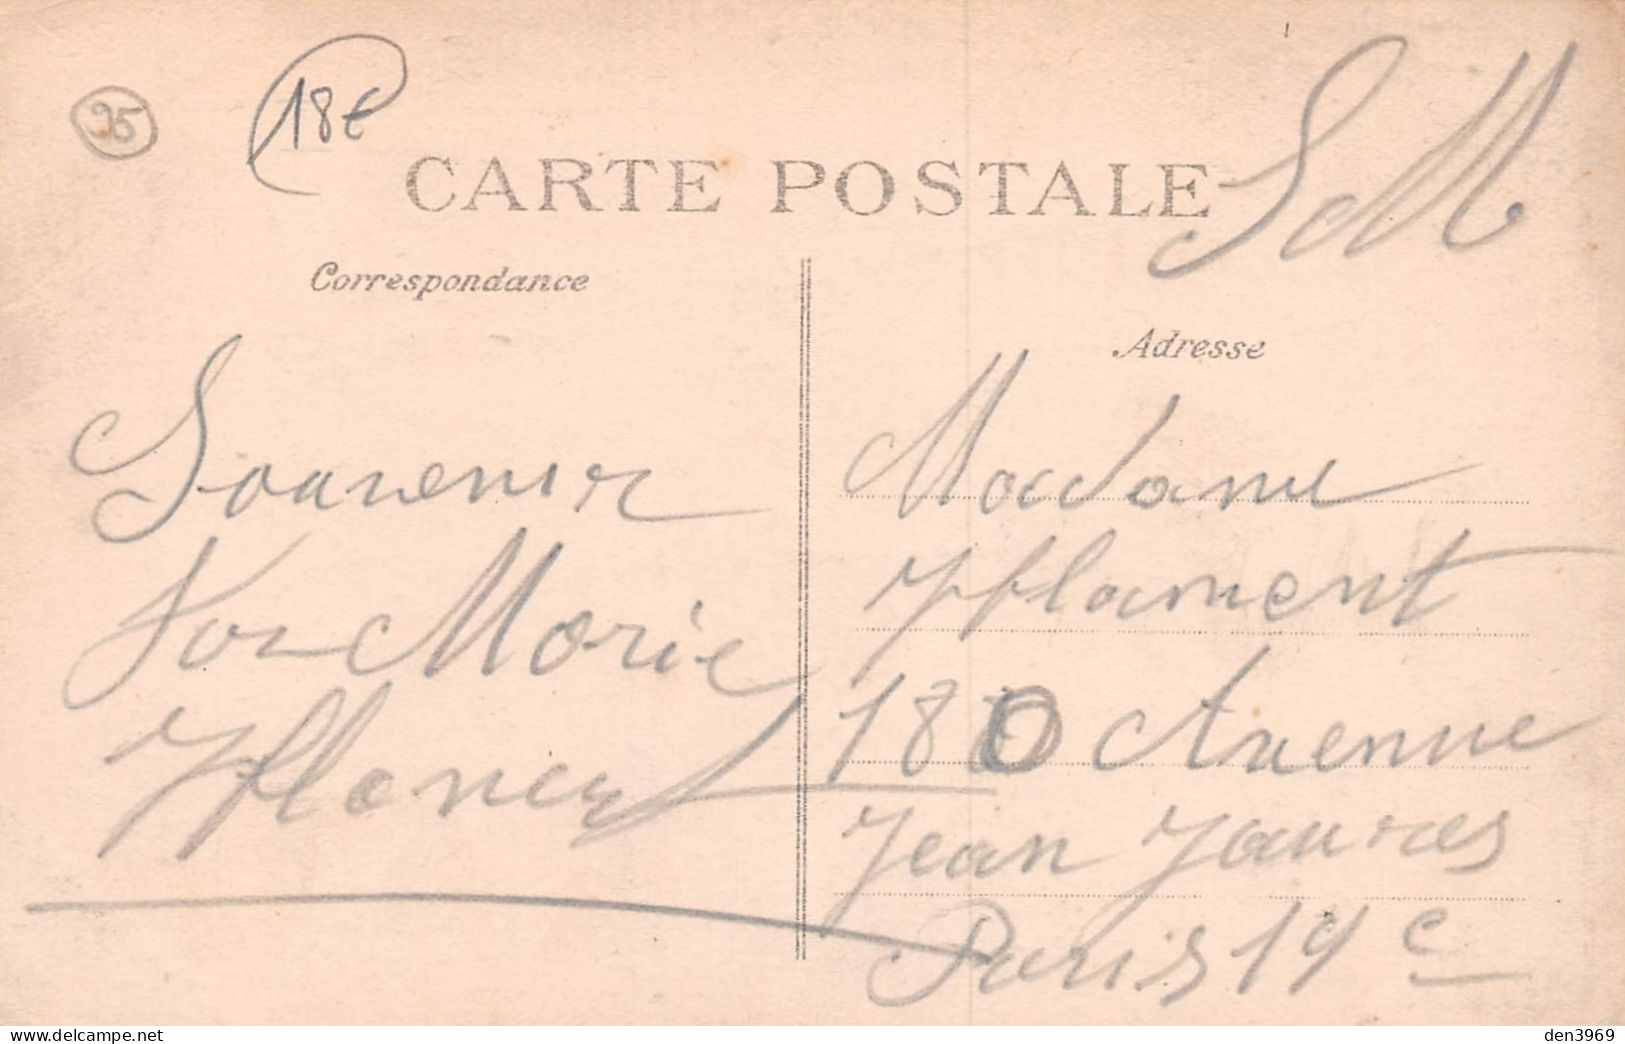 95
18€
S M
CARTE POSTALE
Correspondance
Adresse
Souvenir
Marie
Madame
Yflament
180 Avenue
Jean Jaures
Paris 19e
www.delcampe.net
den3969